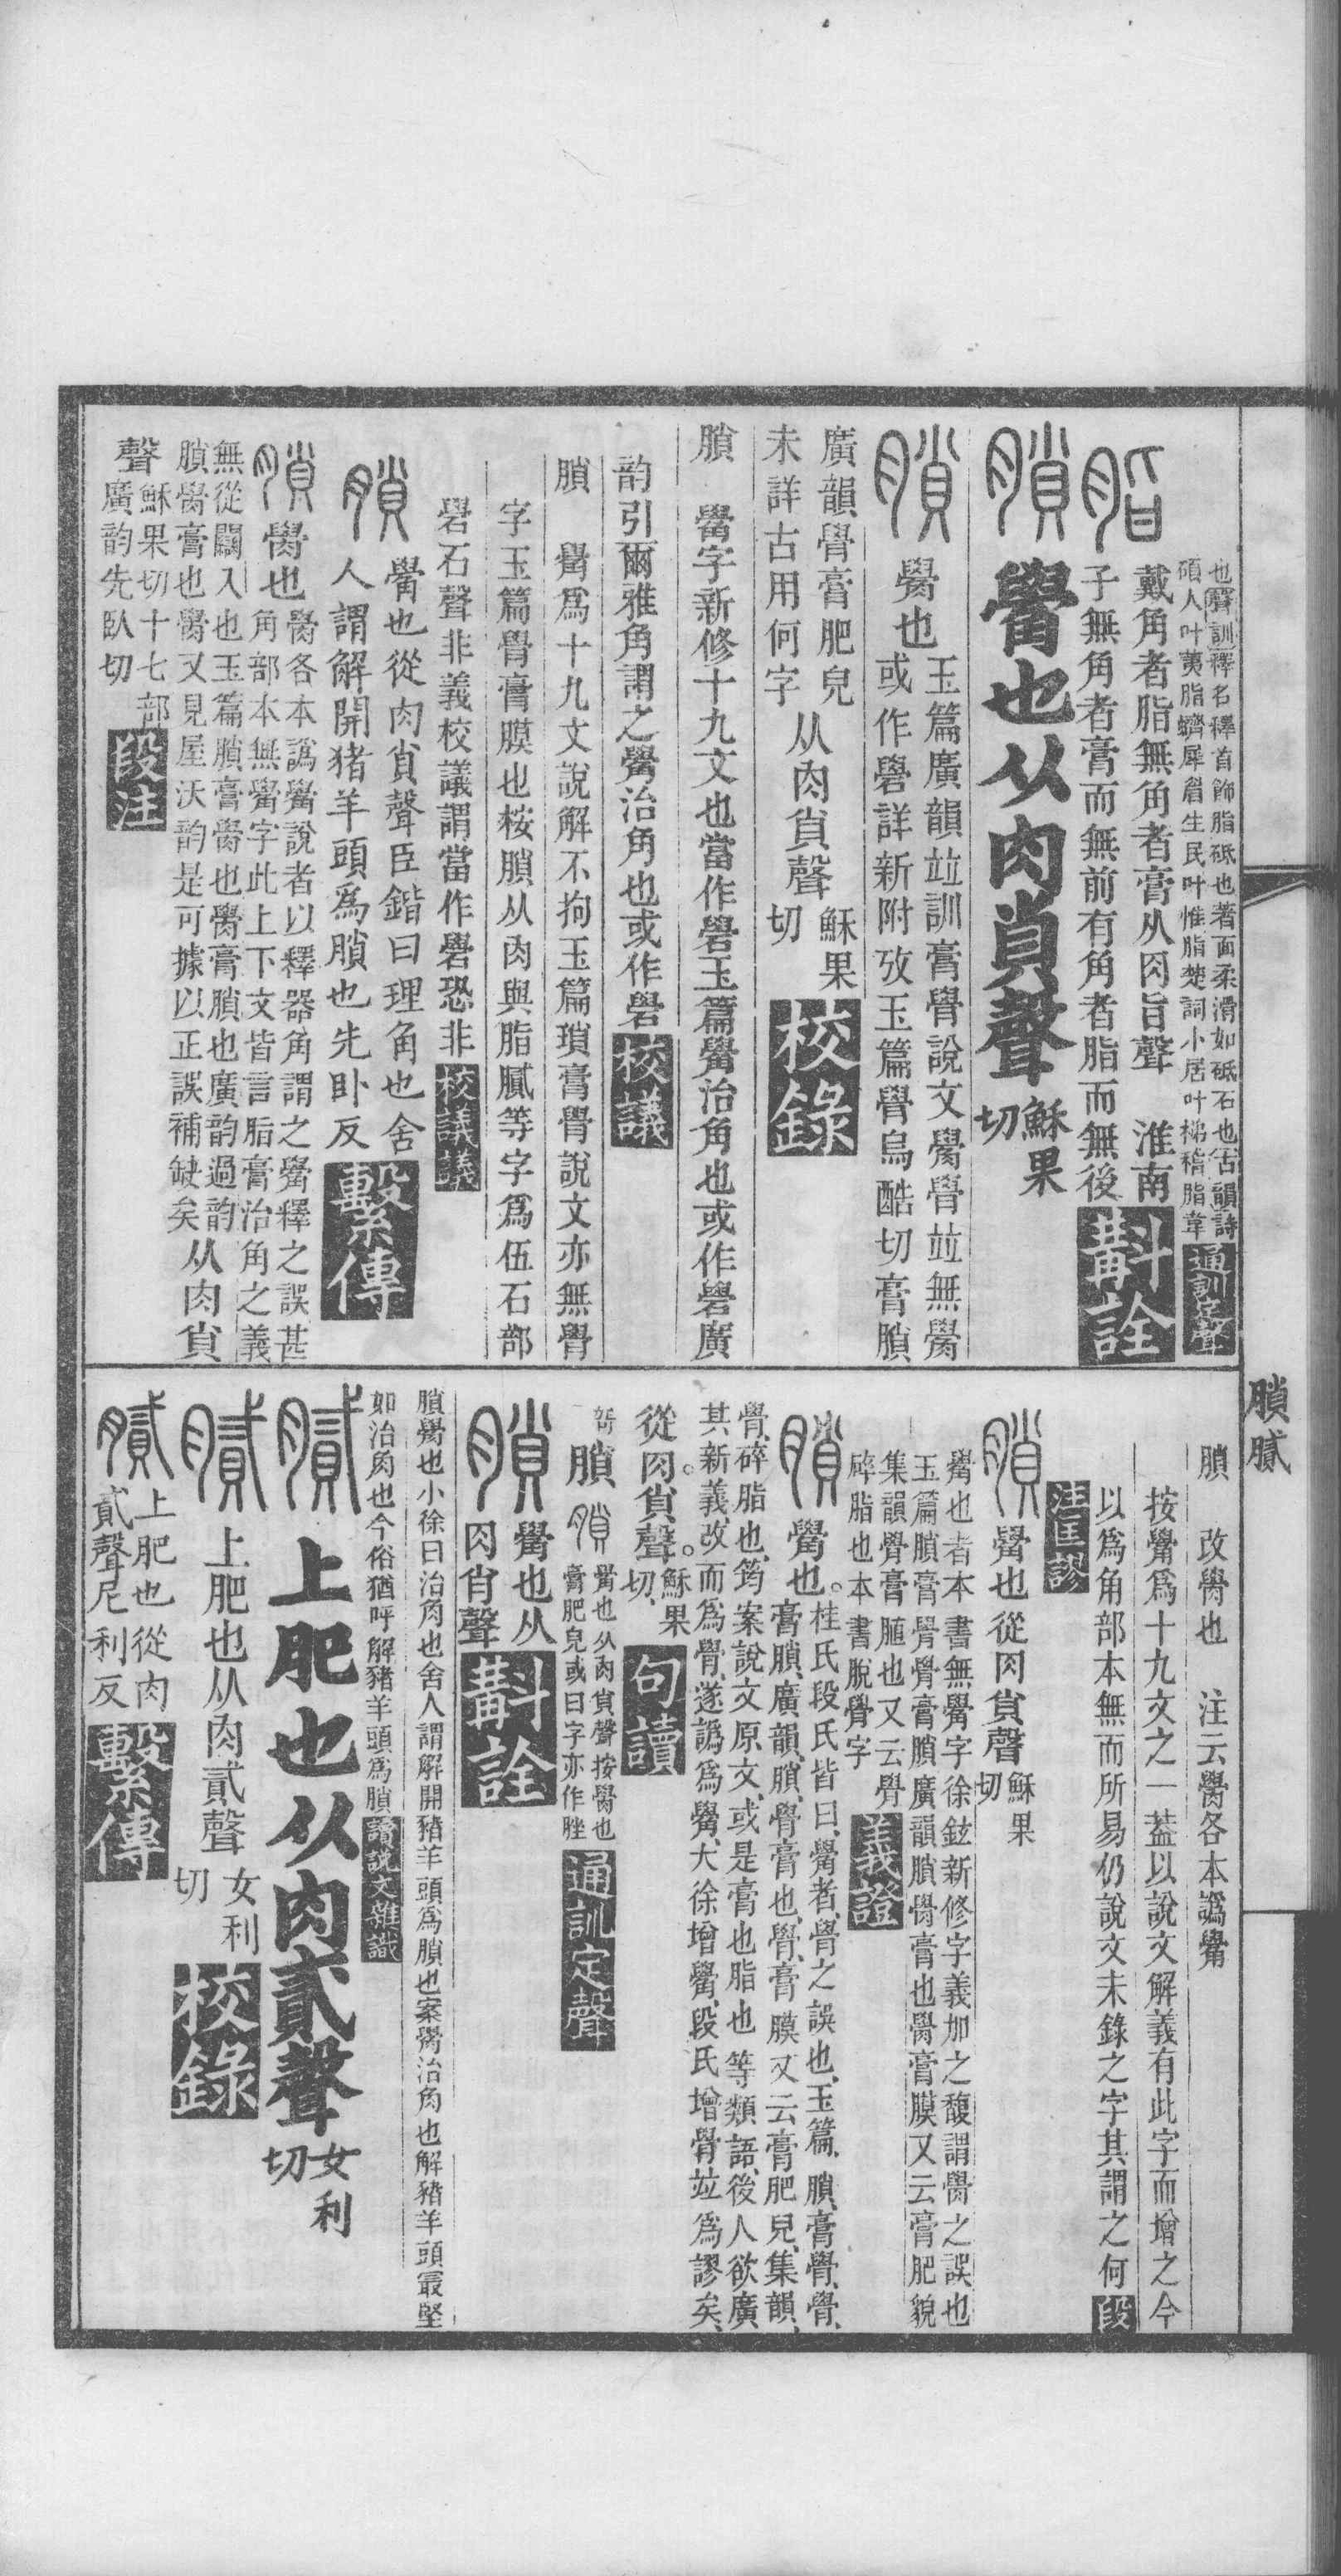 也【聲訓】釋名釋首飾脂砥也著面柔滑如砥石也【古韻】詩
碩人叶荑脂蠐犀眉生民叶惟脂楚詞卜居叶梯稽脂韋 通訓定聲
脂 戴角者脂無角者膏从肉旨聲 淮南
子無角者膏而無前有角者脂而無後 斠詮
䐝 觷也从肉𧴪聲 穌果切
䐝 觷也 玉篇廣韻竝訓膏䯨說文觷䯨竝無觷
或作礐詳新附攷玉篇䯨烏酷切膏䐝
廣韻䯨膏肥皃
未詳古用何字 从肉𧴪聲 穌果切 校錄
䐝 觷字新修十九文也當作礐玉篇觷治角也或作礐廣
韵引爾雅角謂之觷治角也或作礐 校議
䐝 觷爲十九文說解不拘玉篇瑣膏䯨說文亦無䯨
字玉篇䯨膏膜也桉䐝从肉與脂膩等字爲伍石部
礐石聲非義校議謂當作礐恐非 校議議
䐝 觷也從肉𧴪聲臣鍇曰理角也舍
人謂解開猪羊頭爲䐝也先卧反 繫傳
䐝 觷也 觷各本譌觷說者以釋器角謂之觷釋之誤甚
角部本無觷字此上下文皆言脂膏治角之義
無從闌入也玉篇䐝膏觷也觷膏䐝也廣韵過韵
䐝觷膏也觷又見屋沃韵是可據以正誤補缺矣 从肉𧴪
聲 穌果切十七部
廣韵先臥切 段注
䐝膩
䐝 改觷也 注云觷各本譌觷
按觷爲十九文之一葢以說文解義有此字而增之今
以爲角部本無而所易仍說文未錄之字其謂之何 段
注匡謬
䐝 觷也從肉𧴪聲 穌果切
觷也者本書無觷字徐鉉新修字義加之馥謂觷之誤也
玉篇䐝膏䯨䯨膏䐝廣韻䐝䯨膏也觷膏膜又云膏肥貌
集韻䯨膏腫也又云䯨
碎脂也本書脫䯨字 義證
䐝 觷也。桂氏段氏皆曰、觷者、䯨之誤也、玉篇、䐝、膏䯨、䯨、
膏䐝、廣韻、䐝、䯨膏也、䯨、膏膜又云膏肥皃、集韻、
䯨、碎脂也、筠案說文原文、或是膏也脂也等類語、後人欲廣
其新義、改而爲䯨、遂譌爲觷、大徐增觷、段氏增䯨竝爲謬矣、
從肉。𧴪聲。 穌果切、 句讀
䐝 觷也从肉𧴪聲按觷也
膏肥皃或曰字亦作脞 通訓定聲
䐝 觷也从
肉肖聲 斠詮
䐝觷也小徐曰治角也舍人謂解開豬羊頭爲䐝也案觷治角也解豬羊頭最堅
如治角也今俗猶呼解豬羊頭爲䐝 讀說文雜識
膩 上肥也从肉貳聲 女利切
膩 上肥也从肉貳聲 女利切 校錄
膩 上肥也從肉
貳聲尼利反 繫傳